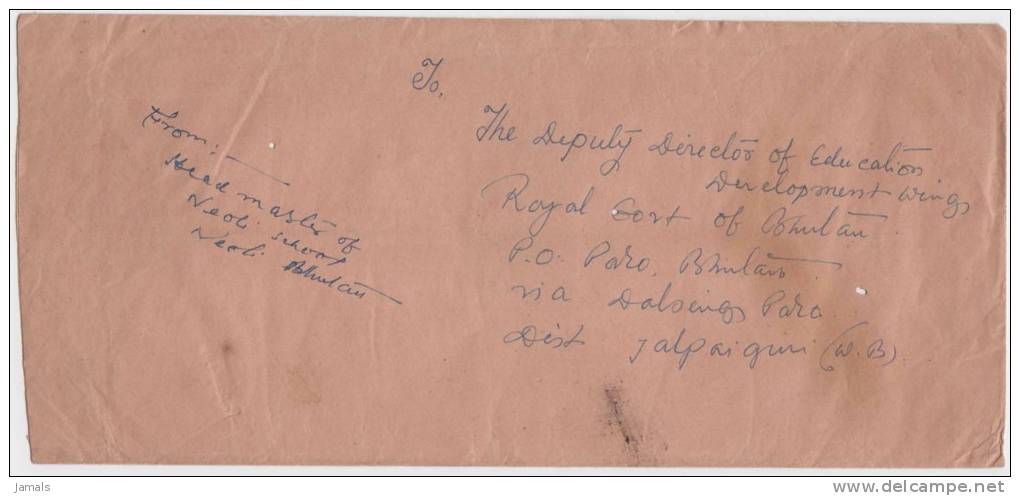 To,
The Deputy Director of Education
Development wings
Royal Govt of Bhutan
P.O. Paro, Bhutan
via Dalsing Para
Dist Jalpaiguri (W.B).
From:-
Head master of
Neoli School
Neoli Bhutan
Jamals
www.delcampe.net